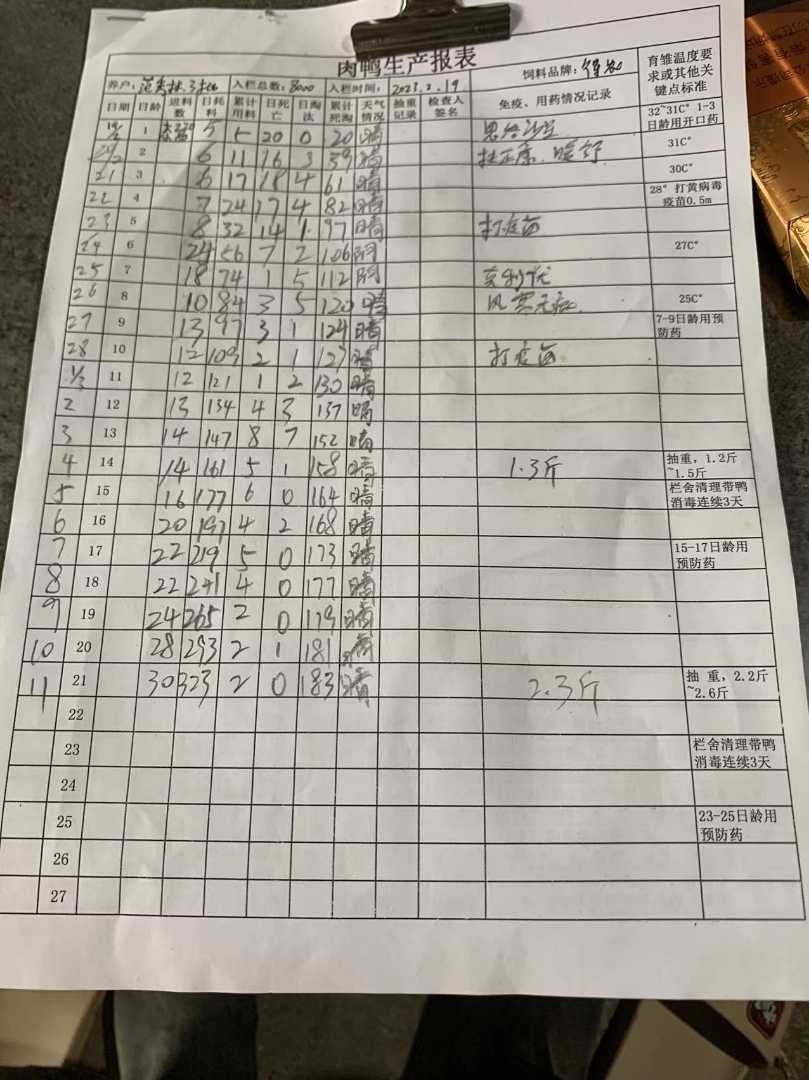 肉鸭生产报表
养户: 入栏总数: 8000 入栏时间: 2023.2.19 饲料品牌: 育雏温度要求或其他关键点标准
日期 日龄 进料数 日耗料 累计用料 日死亡 日淘汰 累计死淘 天气情况 抽重记录 检查人签名 免疫、用药情况记录
19/2 1 5 5 20 0 20 晴 恩诺沙星 32~31C° 1-3日龄用开口药
20/2 2 6 11 16 3 39 晴 扶正康 31C°
21 3 6 17 18 4 61 晴 30C°
22 4 7 24 17 4 82 晴 28° 打黄病毒疫苗0.5m
23 5 8 32 14 1 97 晴 打疫苗
24 6 24 56 7 2 106 阴 27C°
25 7 18 74 1 5 112 阴
26 8 10 84 3 5 120 晴 25C°
27 9 13 97 3 1 124 晴 7-9日龄用预防药
28 10 12 109 2 1 127 晴 打疫苗
1/3 11 12 121 1 2 130 晴
2 12 13 134 4 3 137 晴
3 13 14 147 8 7 152 晴
4 14 14 161 5 1 158 晴 1.3斤 抽重，1.2斤~1.5斤
5 15 16 177 6 0 164 晴 栏舍清理带鸭消毒连续3天
6 16 20 197 4 2 168 晴
7 17 22 219 5 0 173 晴 15-17日龄用预防药
8 18 22 241 4 0 177 晴
9 19 24 265 2 0 179 晴
10 20 28 293 2 1 181 晴
11 21 30 323 2 0 183 晴 2.3斤 抽 重，2.2斤~2.6斤
22
23 栏舍清理带鸭消毒连续3天
24
25 23-25日龄用预防药
26
27